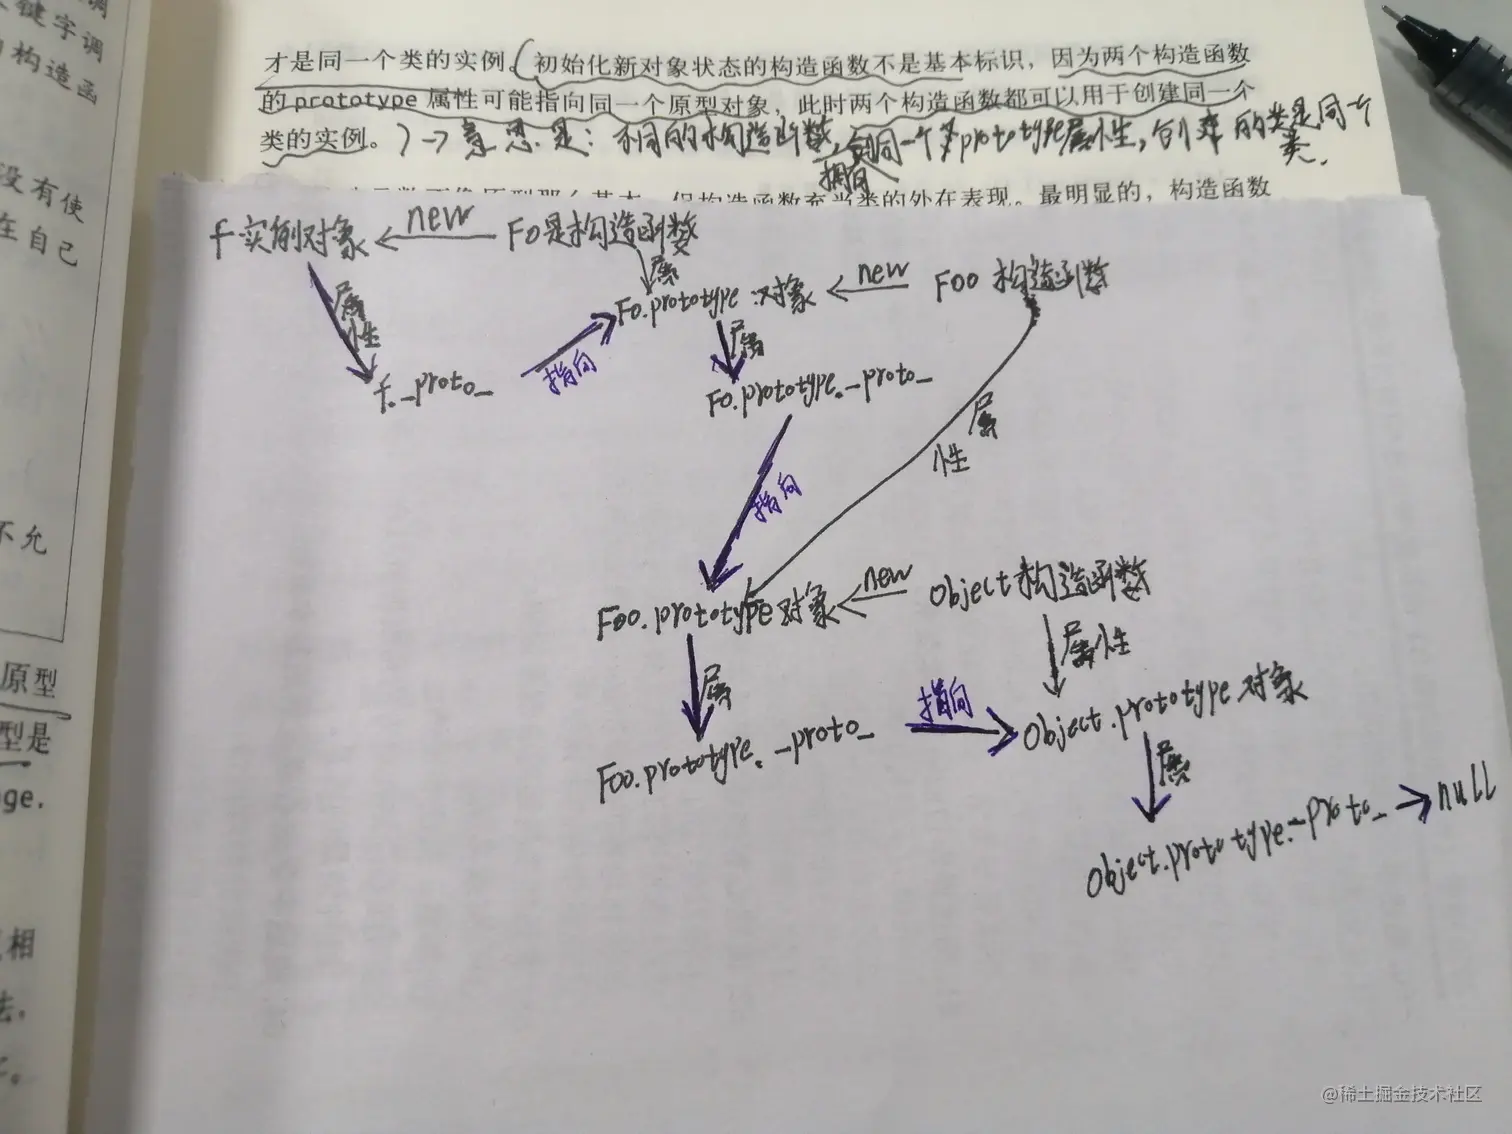 键字调
构造函
没有使
在自己
不允
原型
型是
ge.
相
法,
才是同一个类的实例。(初始化新对象状态的构造函数不是基本标识，因为两个构造函数
的prototype属性可能指向同一个原型对象，此时两个构造函数都可以用于创建同一个
类的实例。)→意思是：不同的构造函数，拥有同一个prototype属性，创建的类是同一个
类.
但构造函数充当类的外在表现。最明显的，构造函数
f实例对象 new FO是构造函数
属性 属
FO.prototype对象 new FOO 构造函数
f._proto_ 指向 属
FO.prototype._proto_
属性
指向
Foo.prototype对象 new Object构造函数
属 属性
Foo.prototype._proto_ 指向 Object.prototype对象
属
Object.prototype._proto_ → null
@稀土掘金技术社区